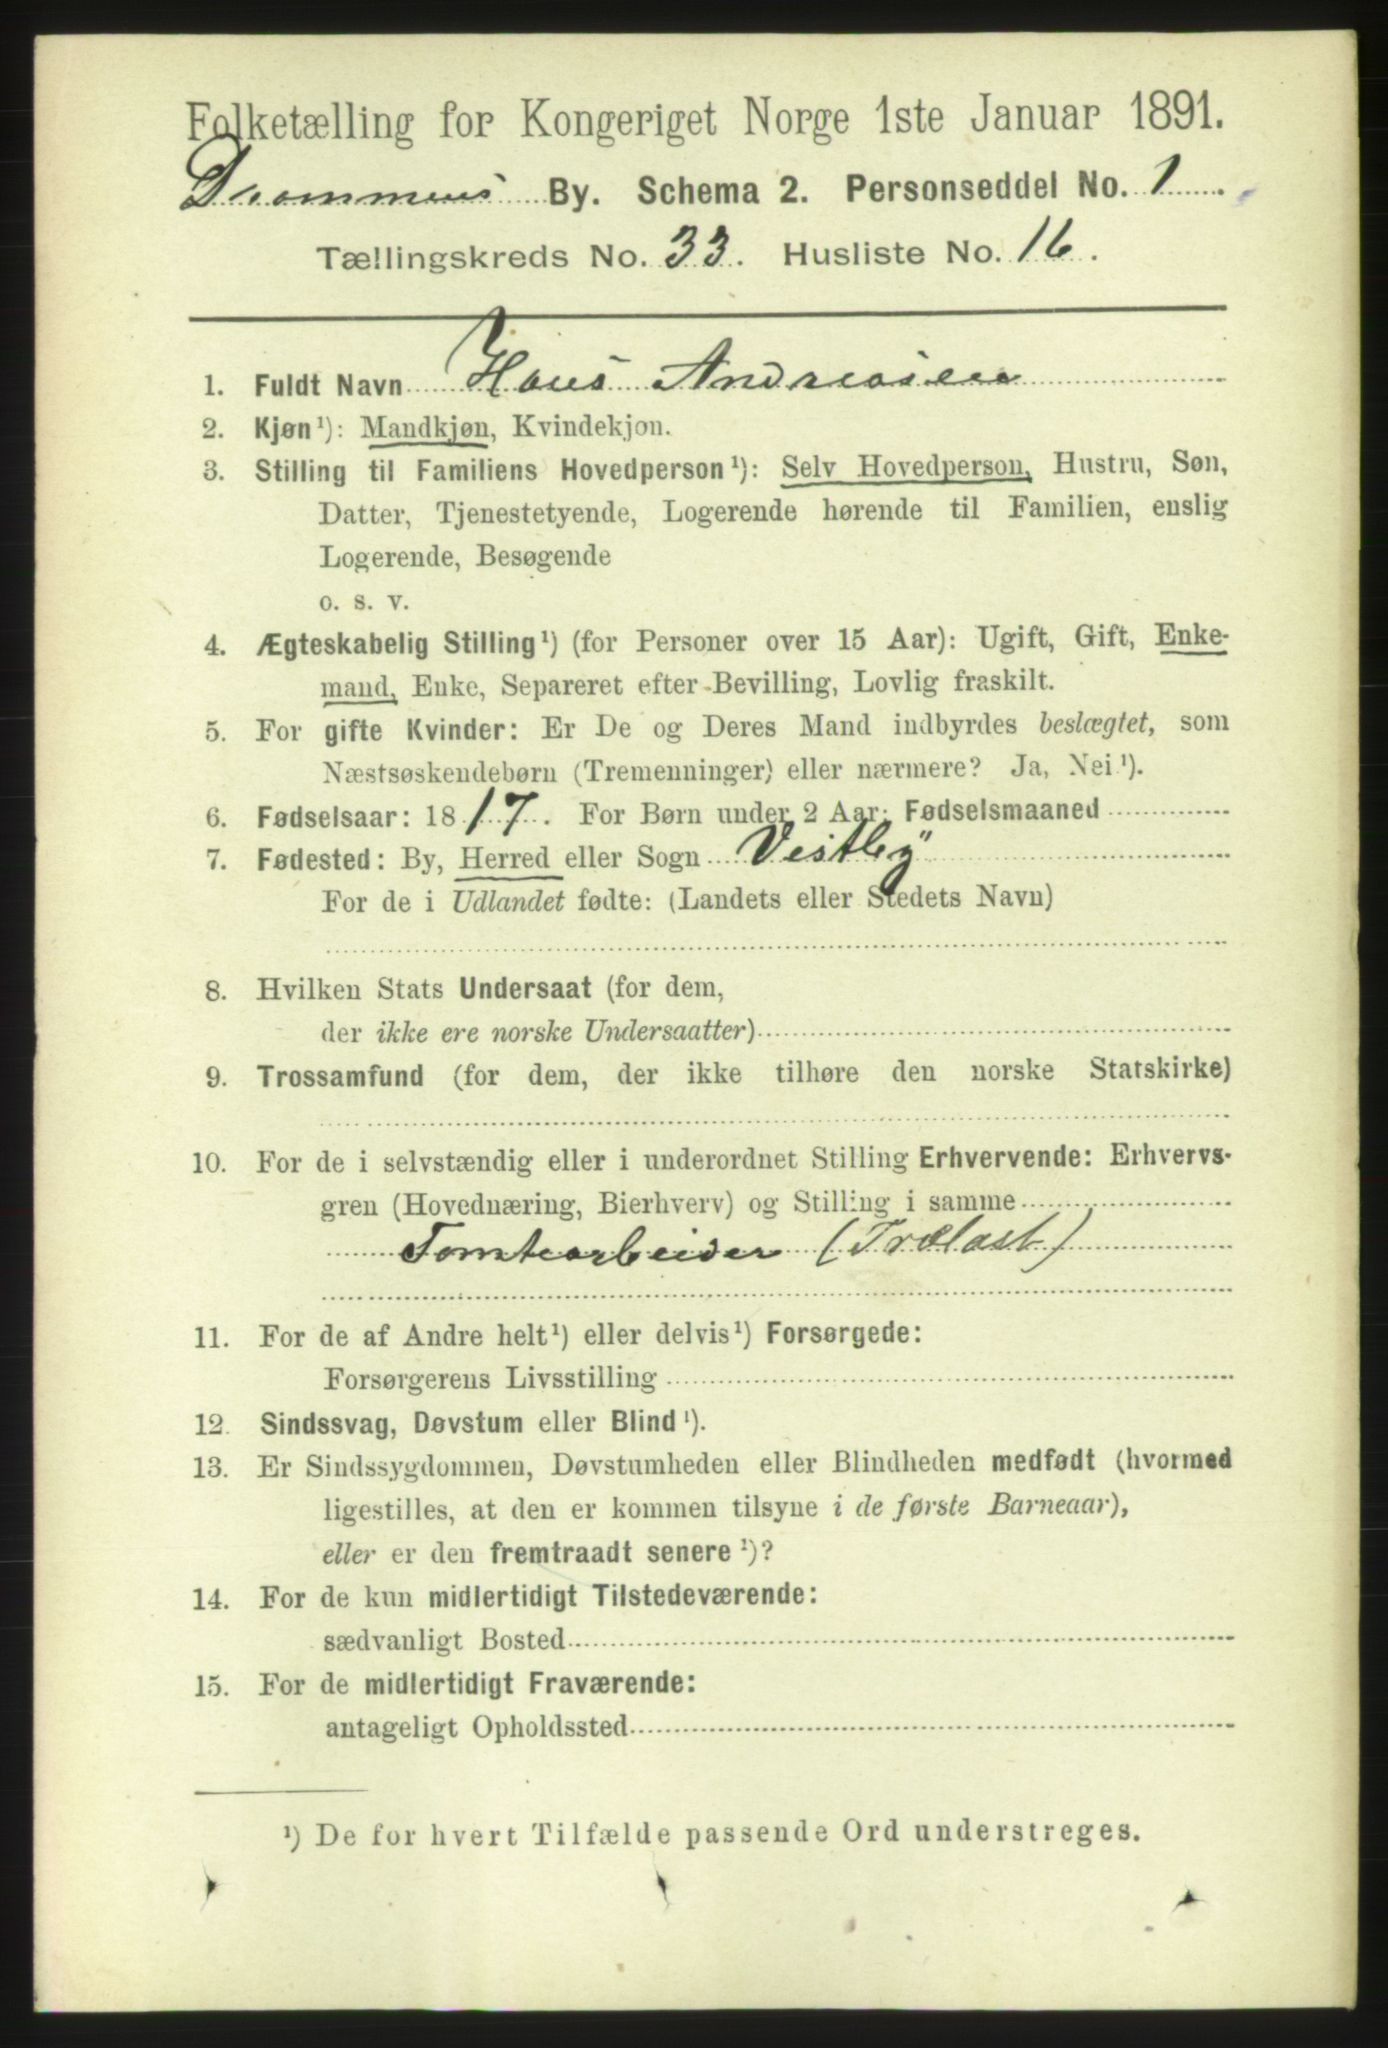 Folketælling for Kongeriget Norge 1ste Januar 1891.
Drammens By. Schema 2. Personseddel No. 1.
Tællingskreds No. 33. Husliste No. 16.
1. Fuldt Navn Hans Andreasen
2. Kjøn¹): Mandkjøn, Kvindekjøn.
3. Stilling til Familiens Hovedperson¹): Selv Hovedperson, Hustru, Søn,
Datter, Tjenestetyende, Logerende hørende til Familien, enslig
Logerende, Besøgende
o. s. v.
4. Ægteskabelig Stilling¹) (for Personer over 15 Aar): Ugift, Gift, Enke-
mand, Enke, Separeret efter Bevilling, Lovlig fraskilt.
5. For gifte Kvinder: Er De og Deres Mand indbyrdes beslægtet, som
Næstsøskendebørn (Tremenninger) eller nærmere? Ja, Nei¹).
6. Fødselsaar: 1817. For Børn under 2 Aar: Fødselsmaaned
7. Fødested: By, Herred eller Sogn Vestby
For de i Udlandet fødte: (Landets eller Stedets Navn)
8. Hvilken Stats Undersaat (for dem,
der ikke ere norske Undersaatter)
9. Trossamfund (for dem, der ikke tilhøre den norske Statskirke)
10. For de i selvstændig eller i underordnet Stilling Erhvervende: Erhvervs-
gren (Hovednæring, Bierhverv) og Stilling i samme
Tomtearbeider (Trælast)
11. For de af Andre helt¹) eller delvis¹) Forsørgede:
Forsørgerens Livsstilling
12. Sindssvag, Døvstum eller Blind¹).
13. Er Sindssygdommen, Døvstumheden eller Blindheden medfødt (hvormed
ligestilles, at den er kommen tilsyne i de første Barneaar),
eller er den fremtraadt senere¹)?
14. For de kun midlertidigt Tilstedeværende:
sædvanligt Bosted
15. For de midlertidigt Fraværende:
antageligt Opholdssted
¹) De for hvert Tilfælde passende Ord understreges.